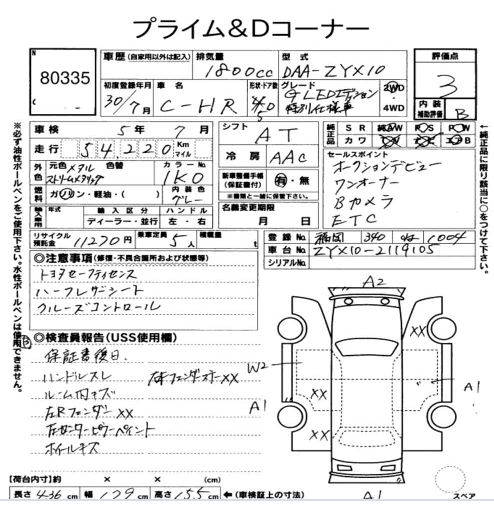 プライム&Dコーナー
No. 80335
車歴 (自家用以外は記入) 排気量 1800cc 型式 DAA-ZYX10
評価点 3
初度登録年月 30/7月 車名 C-HR 形状 ドア数 5 グレード G-LEDエディション 特別仕様車 2WD 4WD
内装補助評価 B
車検 5年 7月 シフト AT
純正品 SR AW PS PW カワ エアB
走行 54,220 Km マイル 冷房 AAC
セールスポイント
オークションデビュー
ワンオーナー
Bカメラ
ETC
外色 元色 メタル ストリームメタリック 色替 カラーNo. 1K0
燃料 ガソリン・軽油・( ) 内装色 グレー
新車整備手帳 (保証書付) 有・無
※書類と一緒に保管下さい。
輸入車用 年式 輸入区分 ハンドル
ディーラー・並行 左・右
名義変更期限 月 日
リサイクル預託金 11270円 乗車定員 5人 積載量
登録No. 福岡 340 1004
車台No. ZYX10-2119105
シリアルNo.
◎注意事項(修復・不具合箇所および状態等)
トヨタセーフティセンス
ハーフレザーシート
クルーズコントロール
◎検査員報告(USS使用欄)
保証書後日
ハンドルスレ
ルーム内キズ
左Rフェンダー XX
左センターピラーペイント
ホイールキズ
A2
XX
W2
A1
XX
XX
A1
A1
スペア
【荷台内寸】約 × × (cm)
長さ 436 cm 幅 179 cm 高さ 155 cm ←(車検証上の寸法)
※必ず油性ボールペンをご使用下さい。水性ボールペンは使用できません。
純正品に限り該当に○をつけて下さい。